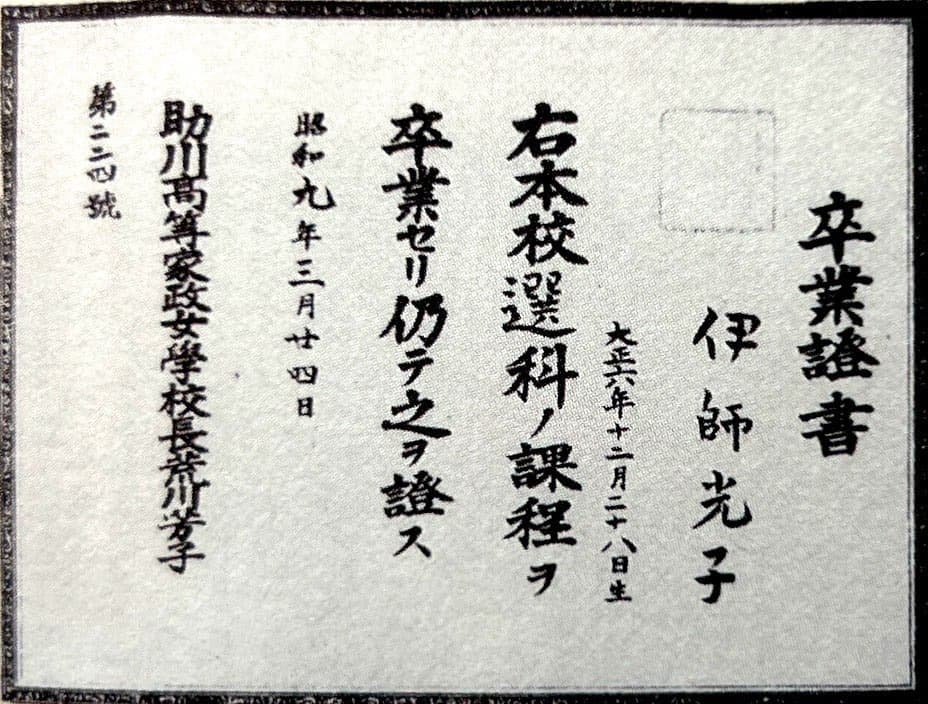 卒業證書
伊師光子
大正六年十二月二十八日生
右本校選科ノ課程ヲ
卒業セリ仍テ之ヲ證ス
昭和九年三月廿四日
助川高等家政女學校長荒川芳子
第二二四號